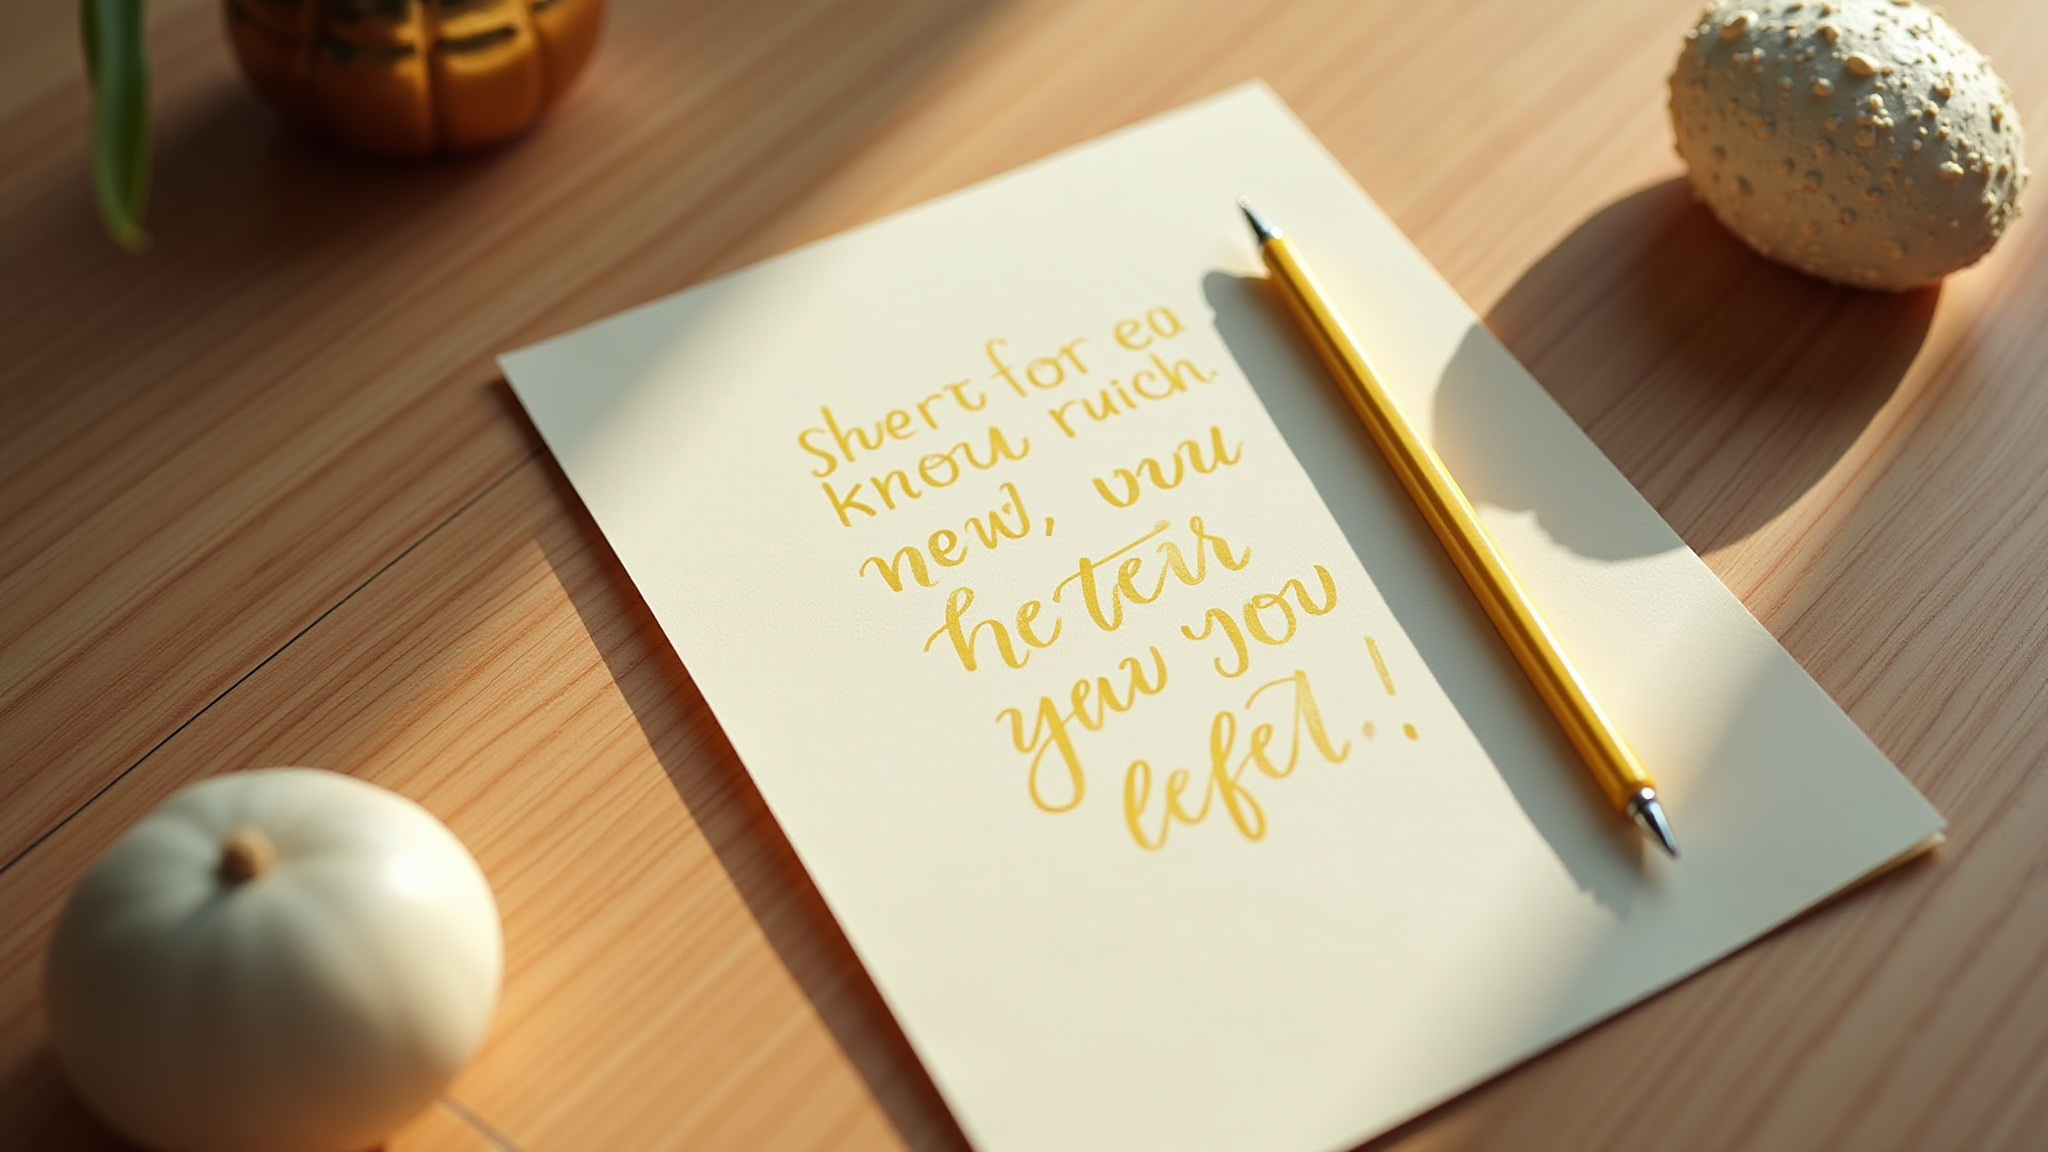 shert for ea
know ruich.
new, vvu
heteir
yew you
lefet.!